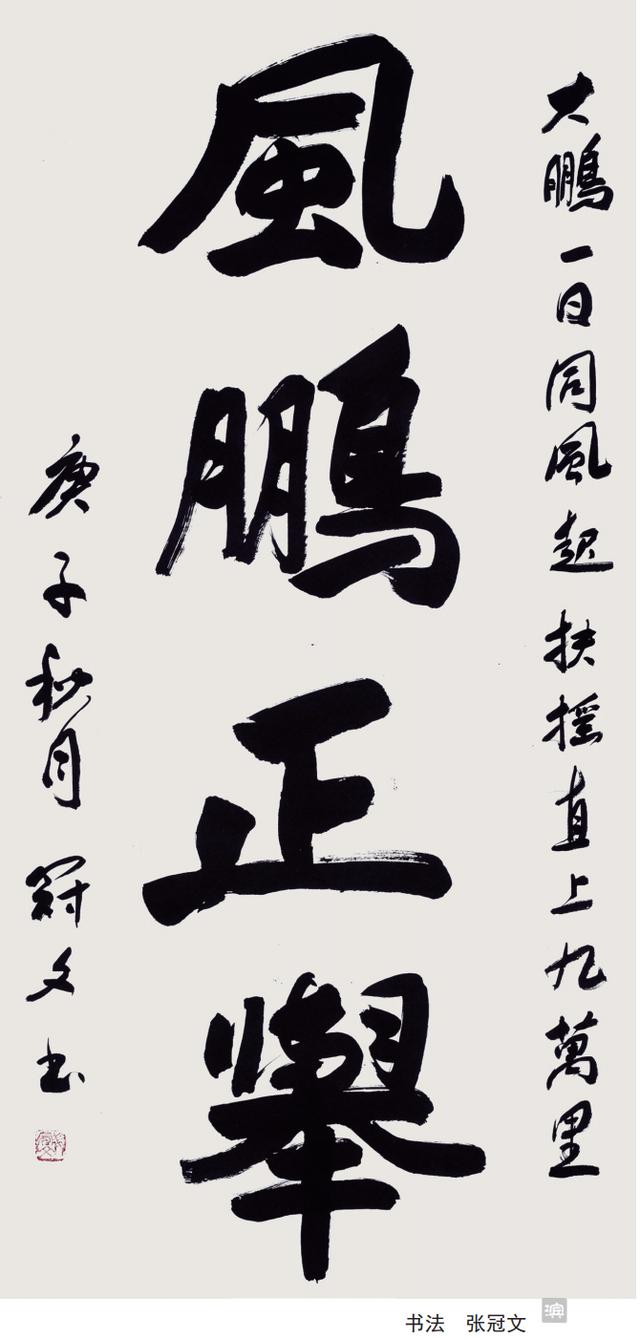 大鵬一日同風起扶摇直上九萬里
風鵬正舉
庚子秋月 冠文书
书法 张冠文
滨